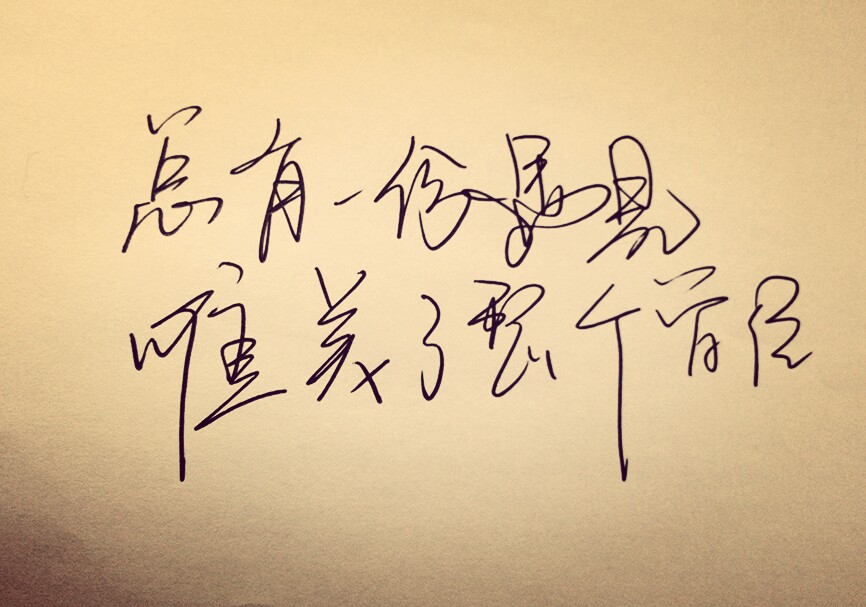 总有一份遇见
唯美了整个